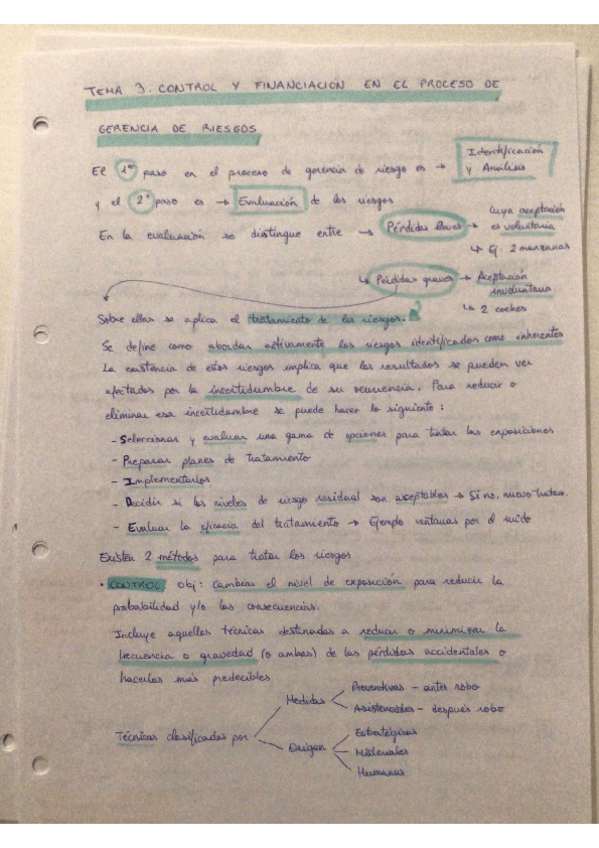 TEMA 3. CONTROL Y FINANCIACIÓN EN EL PROCESO DE
GERENCIA DE RIESGOS
El 1er paso en el proceso de gerencia de riesgo es → Identificación y Análisis
y el 2º paso es → Evaluación de los riesgos
En la evaluación se distingue entre → Pérdidas leves → cuya aceptación es voluntaria
↳ Ej: 2 manzanas
↳ Pérdidas graves → Aceptación involuntaria
↳ 2 coches
Sobre ellas se aplica el tratamiento de los riesgos.
Se define como abordar activamente los riesgos identificados como inherentes
La existencia de estos riesgos implica que los resultados se pueden ver
afectados por la incertidumbre de su ocurrencia. Para reducir o
eliminar esa incertidumbre se puede hacer lo siguiente:
- Seleccionar y evaluar una gama de opciones para tratar las exposiciones
- Preparar planes de tratamiento
- Implementarlos
- Decidir si los niveles de riesgo residual son aceptables → Si no, nuevo tratam.
- Evaluar la eficacia del tratamiento → Ejemplo ventanas por el ruido
Existen 2 métodos para tratar los riesgos
· CONTROL: Obj: Cambiar el nivel de exposición para reducir la
probabilidad y/o las consecuencias.
Incluye aquellas técnicas destinadas a reducir o minimizar la
frecuencia o gravedad (o ambas) de las pérdidas accidentales o
hacerlas más predecibles
Técnicas clasificadas por
Medidas
Preventivas - antes robo
Asistenciales - después robo
Origen
Estratégicas
Materiales
Humanas